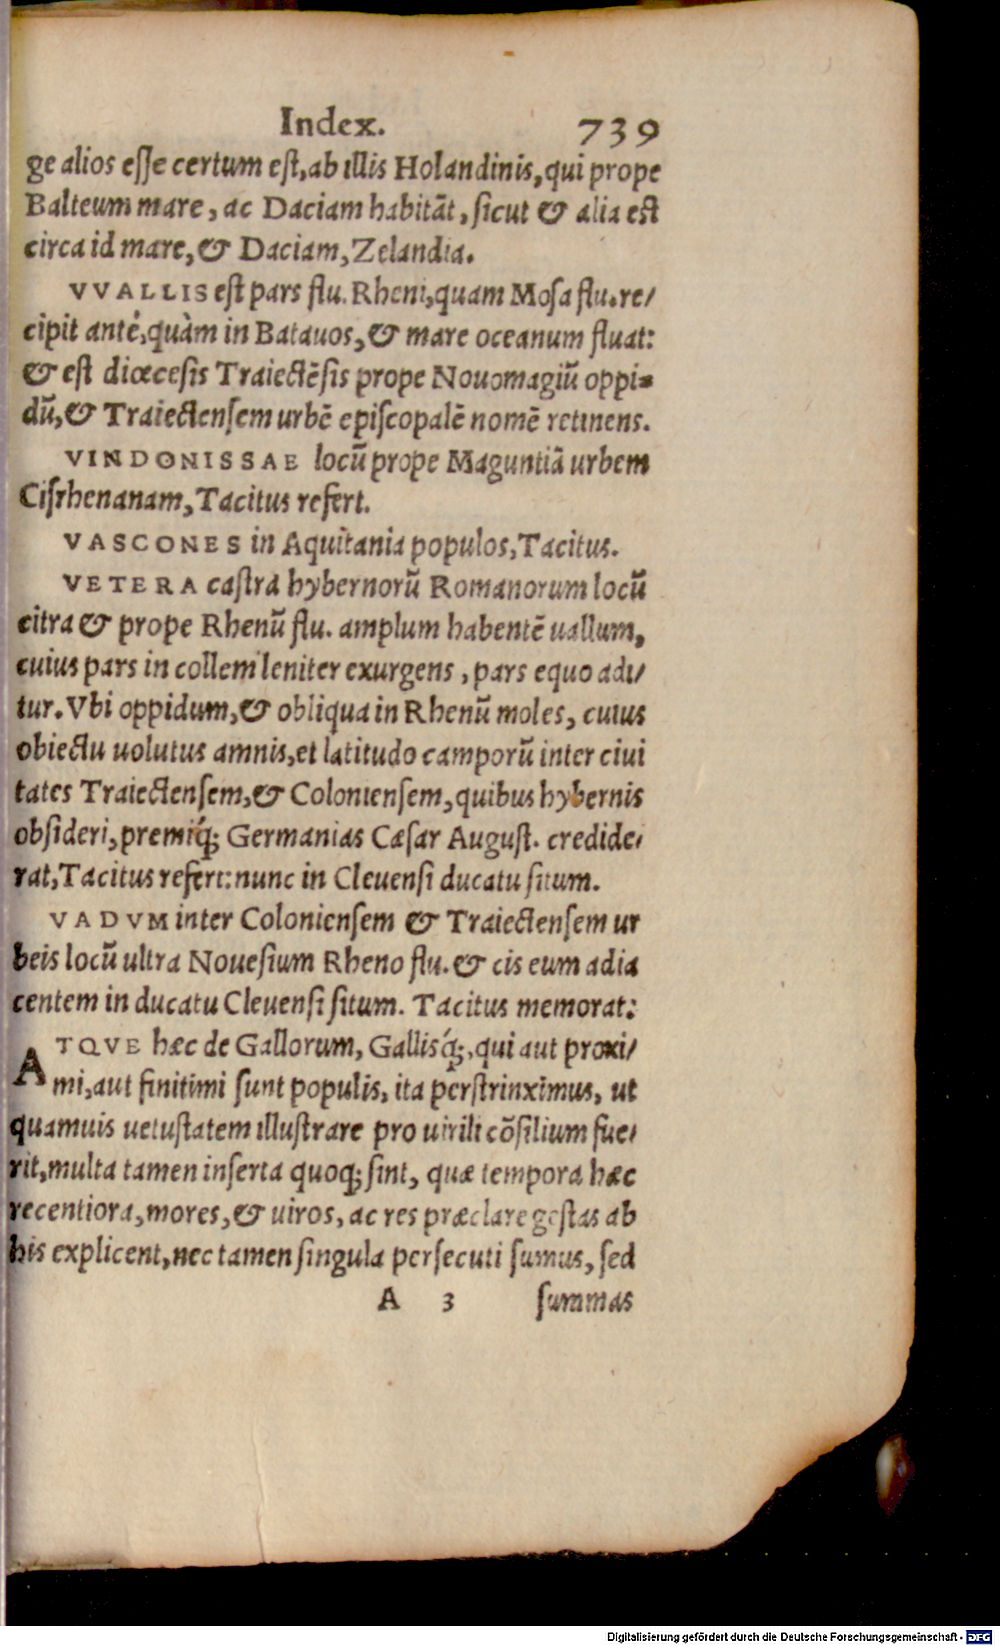 Index. 739
ge alios esse certum est, ab illis Holandinis, qui prope
Balteum mare, ac Daciam habitāt, sicut & alia est
circa id mare, & Daciam, Zelandia.
VVALLIS est pars flu. Rheni, quam Mosa flu. re/
cipit antè, quàm in Batauos, & mare oceanum fluat:
& est diœcesis Traiectēsis prope Nouomagiū oppi=
dū, & Traiectensem urbē episcopalē nomē retinens.
VINDONISSAE locū prope Maguntiā urbem
Cisrhenanam, Tacitus refert.
VASCONES in Aquitania populos, Tacitus.
VETERA castra hybernorū Romanorum locū
citra & prope Rhenū flu. amplum habentē uallum,
cuius pars in collem leniter exurgens, pars equo adi/
tur. Vbi oppidum, & obliqua in Rhenū moles, cuius
obiectu uolutus amnis, et latitudo camporū inter ciui
tates Traiectensem, & Coloniensem, quibus hybernis
obsideri, premiq́; Germanias Cæsar August. credide/
rat, Tacitus refert: nunc in Cleuensi ducatu situm.
VADVM inter Coloniensem & Traiectensem ur
beis locū ultra Nouesium Rheno flu. & cis eum adia
centem in ducatu Cleuensi situm. Tacitus memorat:
ATQVE hæc de Gallorum, Gallisq́;, qui aut proxi/
mi, aut finitimi sunt populis, ita perstrinximus, ut
quamuis uetustatem illustrare pro uirili cōsilium fue/
rit, multa tamen inserta quoq; sint, quæ tempora hæc
recentiora, mores, & uiros, ac res præclare gestas ab
his explicent, nec tamen singula persecuti sumus, sed
A 3 summas
Digitalisierung gefördert durch die Deutsche Forschungsgemeinschaft - DFG